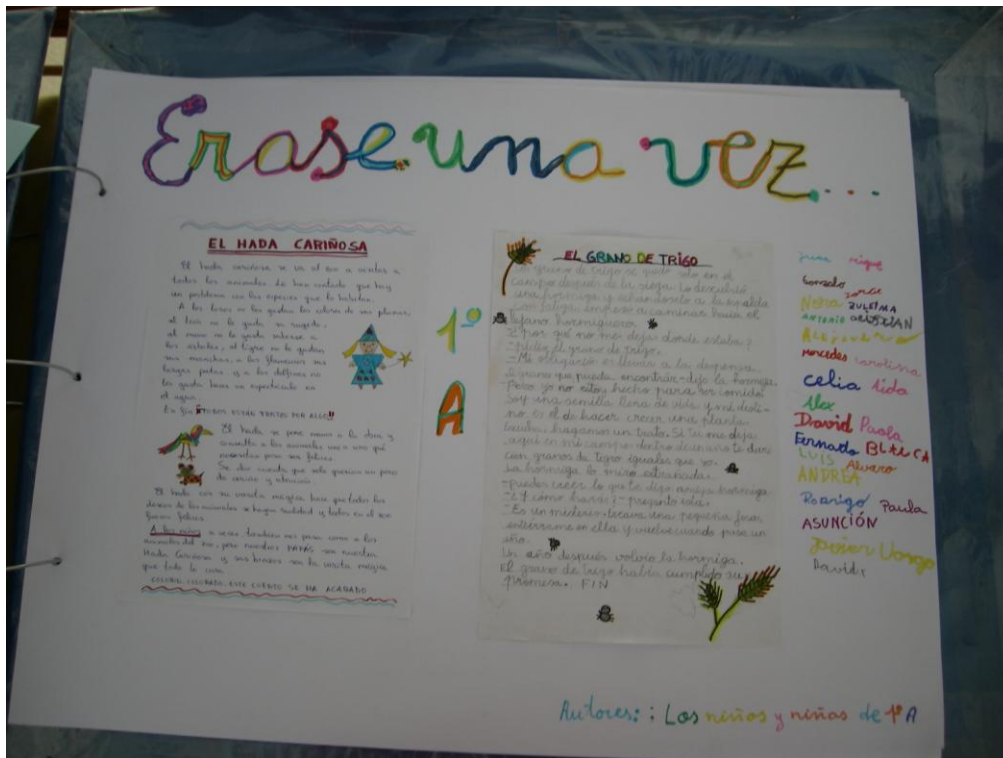 Erase una vez...
EL HADA CARIÑOSA
El hada cariñosa se va al zoo a visitar a
todos los animales. Le han contado que hay
un problema con las especies que lo habitan.
A los loros no les gustan los colores de sus plumas,
al león no le gusta su rugido,
al mono no le gusta subirse a
los árboles, al tigre no le gustan
sus manchas, a los flamencos sus
largas patas y a los delfines no
les gusta hacer un espectáculo en
el agua.
En fin ¡¡TODOS ESTÁN TRISTES POR ALGO!!
El hada se pone manos a la obra y
consulta a los animales uno a uno qué
necesitan para ser felices.
Se dio cuenta que solo querían un poco
de cariño y atención.
El hada con su varita mágica hizo que todos los
deseos de los animales se hagan realidad y todos en el zoo
fueron felices.
A los niños a veces también nos pasa como a los
animales del zoo, pero nuestros PAPÁS son nuestra
Hada Cariñosa y sus brazos son la varita mágica
que todo lo cura.
COLORIN, COLORADO, ESTE CUENTO SE HA ACABADO
1º
A
EL GRANO DE TRIGO
Un grano de trigo se quedó solo en el
campo después de la siega. Lo descubrió
una hormiga y echándoselo a la espalda
con fatiga, empezó a caminar hacia el
lejano hormiguero.
-¿Por qué no me dejas donde estaba?
-pidió el grano de trigo.
-Mi obligación es llevar a la despensa
el grano que pueda encontrar-dijo la hormiga.
-Pero yo no estoy hecho para ser comido
Soy una semilla llena de vida y mi desti-
no es el de hacer crecer una planta.
Escucha, hagamos un trato. Si tú me dejas
aquí en mi campo dentro de un año te daré
cien granos de trigo iguales que yo.
La hormiga lo miró extrañada.
-puedes creer lo que te digo amiga hormiga
-¿Y cómo harás? -preguntó esta.
-Es un misterio. excava una pequeña fosa,
entiérrame en ella y vuelve cuando pase un
año.
Un año después volvió la hormiga.
El grano de trigo había cumplido su
promesa. FIN
Gonzalo Jorge
Nora ZULEIMA
ANTONIO CRISTIAN
Mercedes Carolina
Celia Aida
Alex
David Paola
Fernado BLANCA
LUIS Alvaro
ANDREA
Rodrigo Paula
ASUNCIÓN
Javier
David
Autores: : Los niños y niñas de 1º A